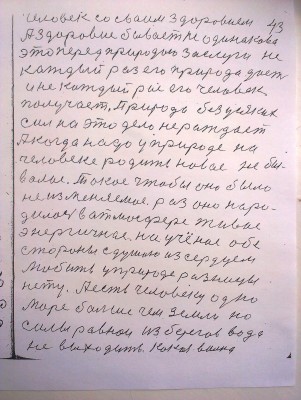 человек со своим здоровием 43
А здоровие бывает не одинаково
это перед природою заслуги не
каждый раз его природа дает
и не каждый раз его человек
получает. Природа без узких
сил на это дело не раждает
А когда надо у природе на
человеке родит новое не бы-
валое. Такое чтобы оно было
не изменяемое раз оно наро-
дилось в атмосфере живое
энергичное. на учёное обе
стороны с душою и сердцем
любить у природе разницы
нету. А есть человеку одно
море больше чем земли но
силы равной из берегов вода
не выходить. Какая волна